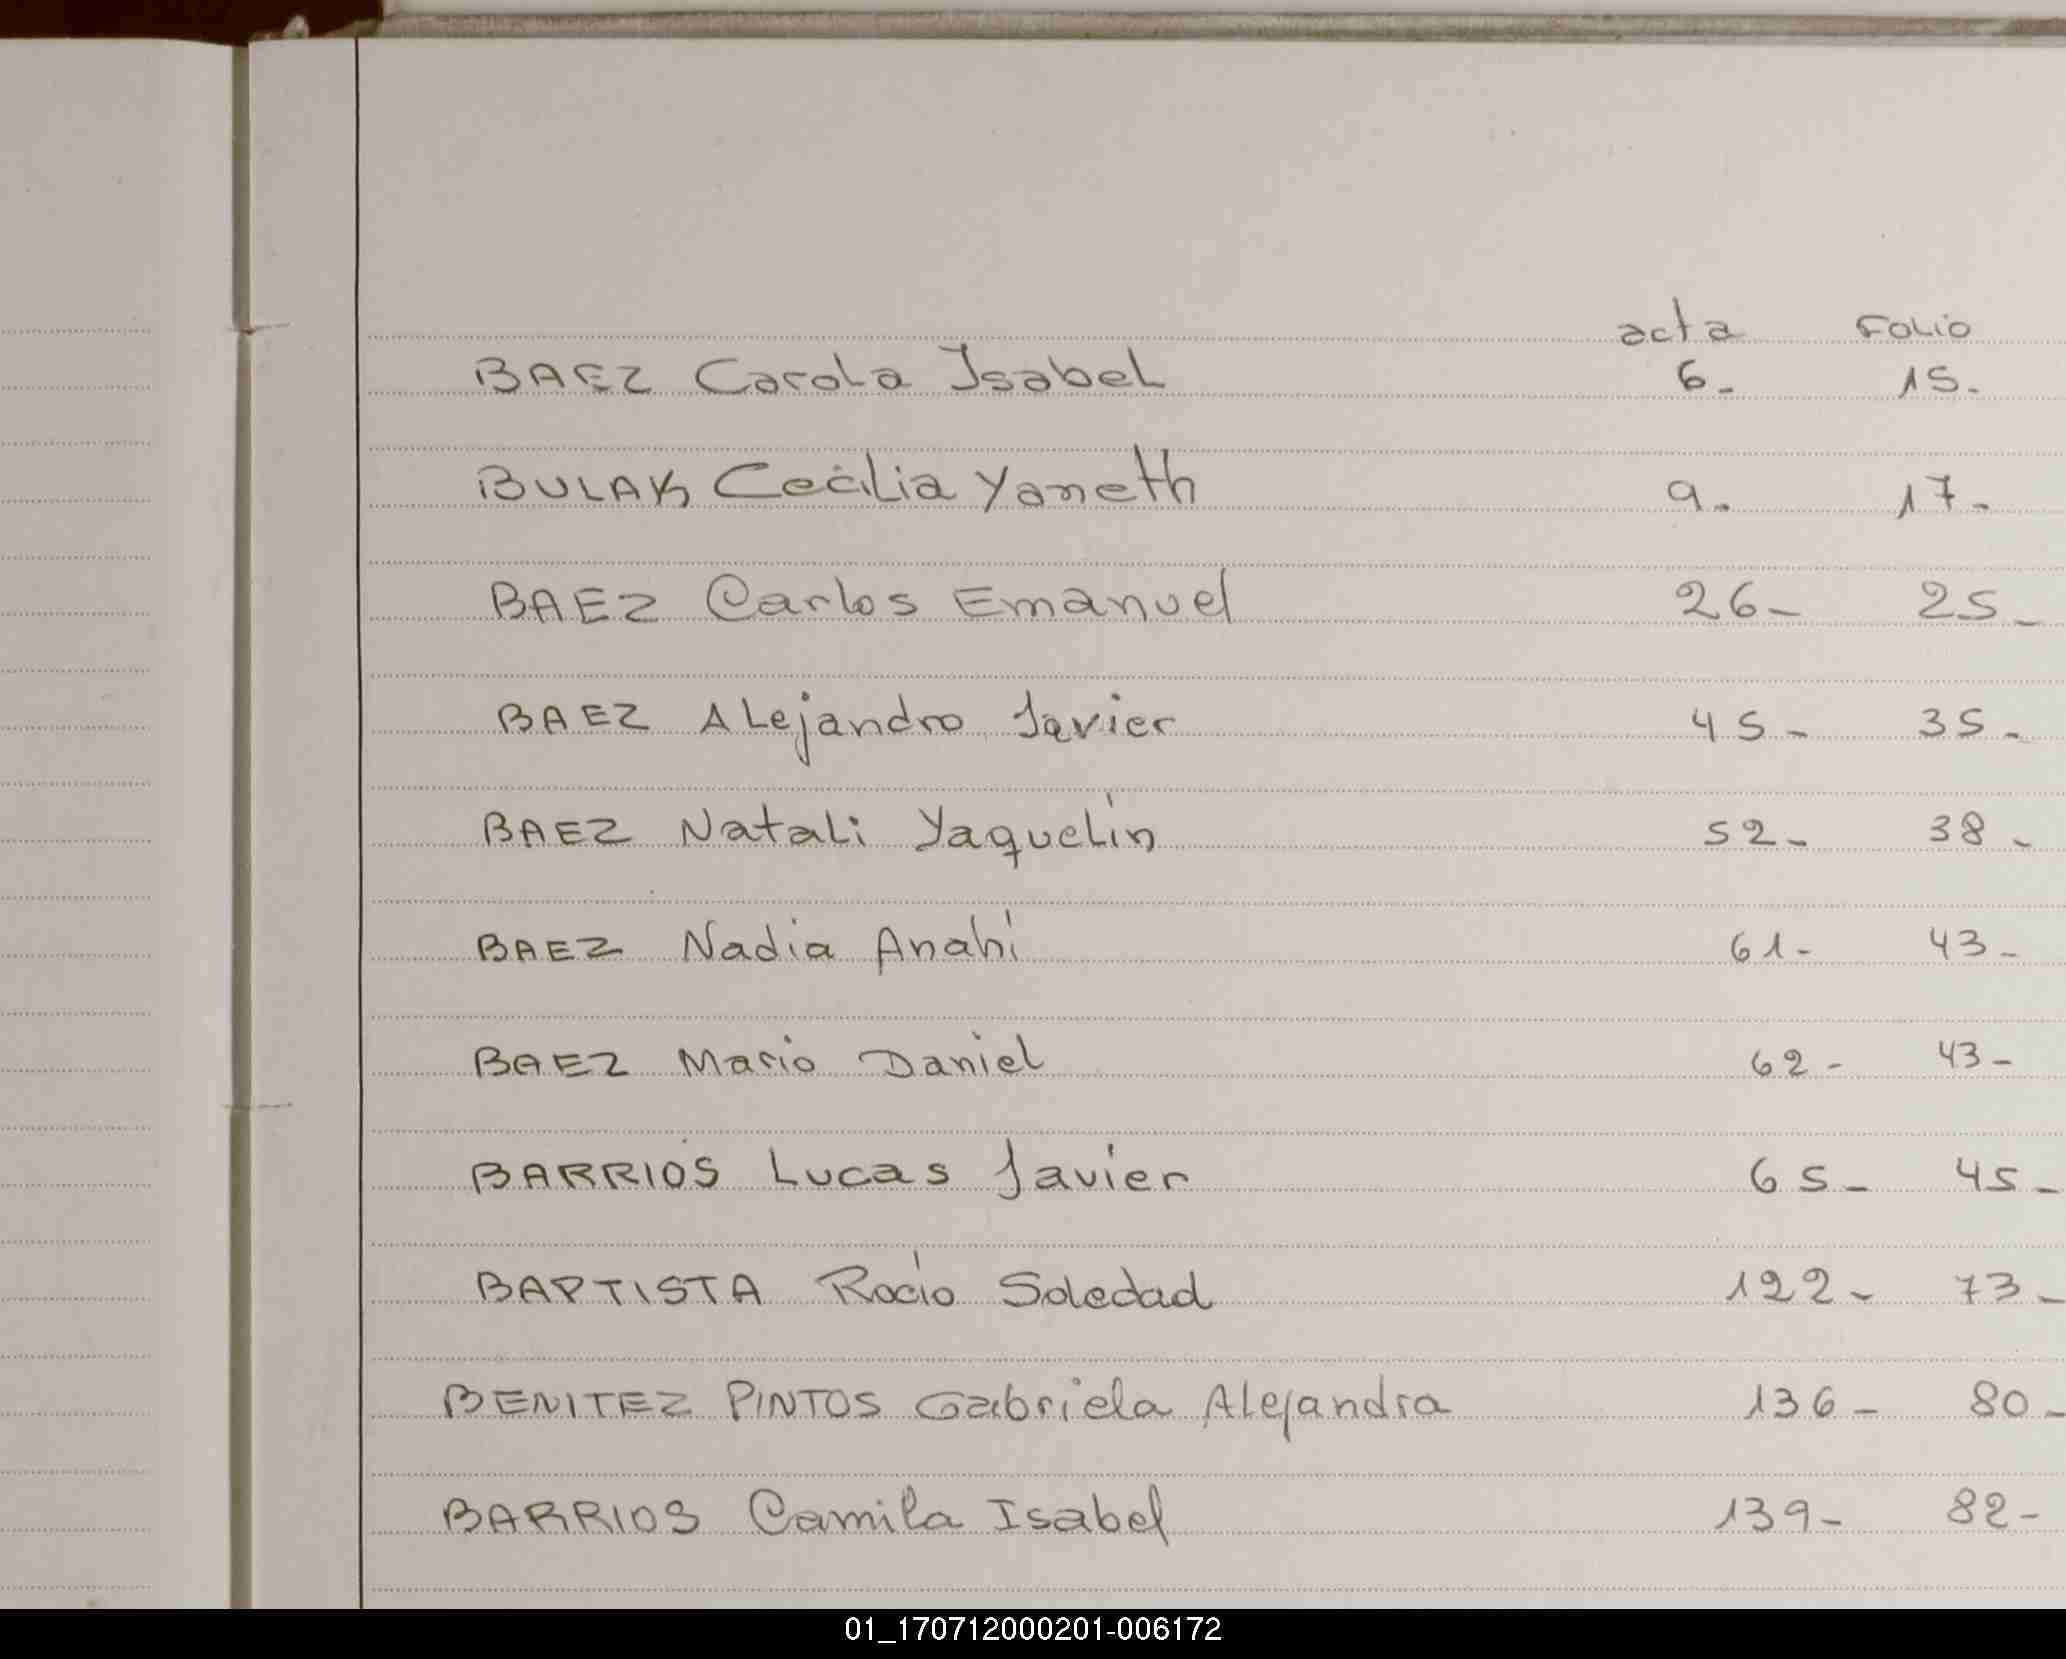 acta Folio
BAEZ Carola Isabel 6- 15-
BULAK Cecilia Yaneth 9- 17-
BAEZ Carlos Emanuel 26- 25-
BAEZ Alejandro Javier 45- 35-
BAEZ Natali Yaquelín 52- 38-
BAEZ Nadia Anahí 61- 43-
BAEZ Mario Daniel 62- 43-
BARRIOS Lucas Javier 65- 45-
BAPTISTA Rocío Soledad 122- 73-
BENITEZ PINTOS Gabriela Alejandra 136- 80-
BARRIOS Camila Isabel 139- 82-
01_170712000201-006172